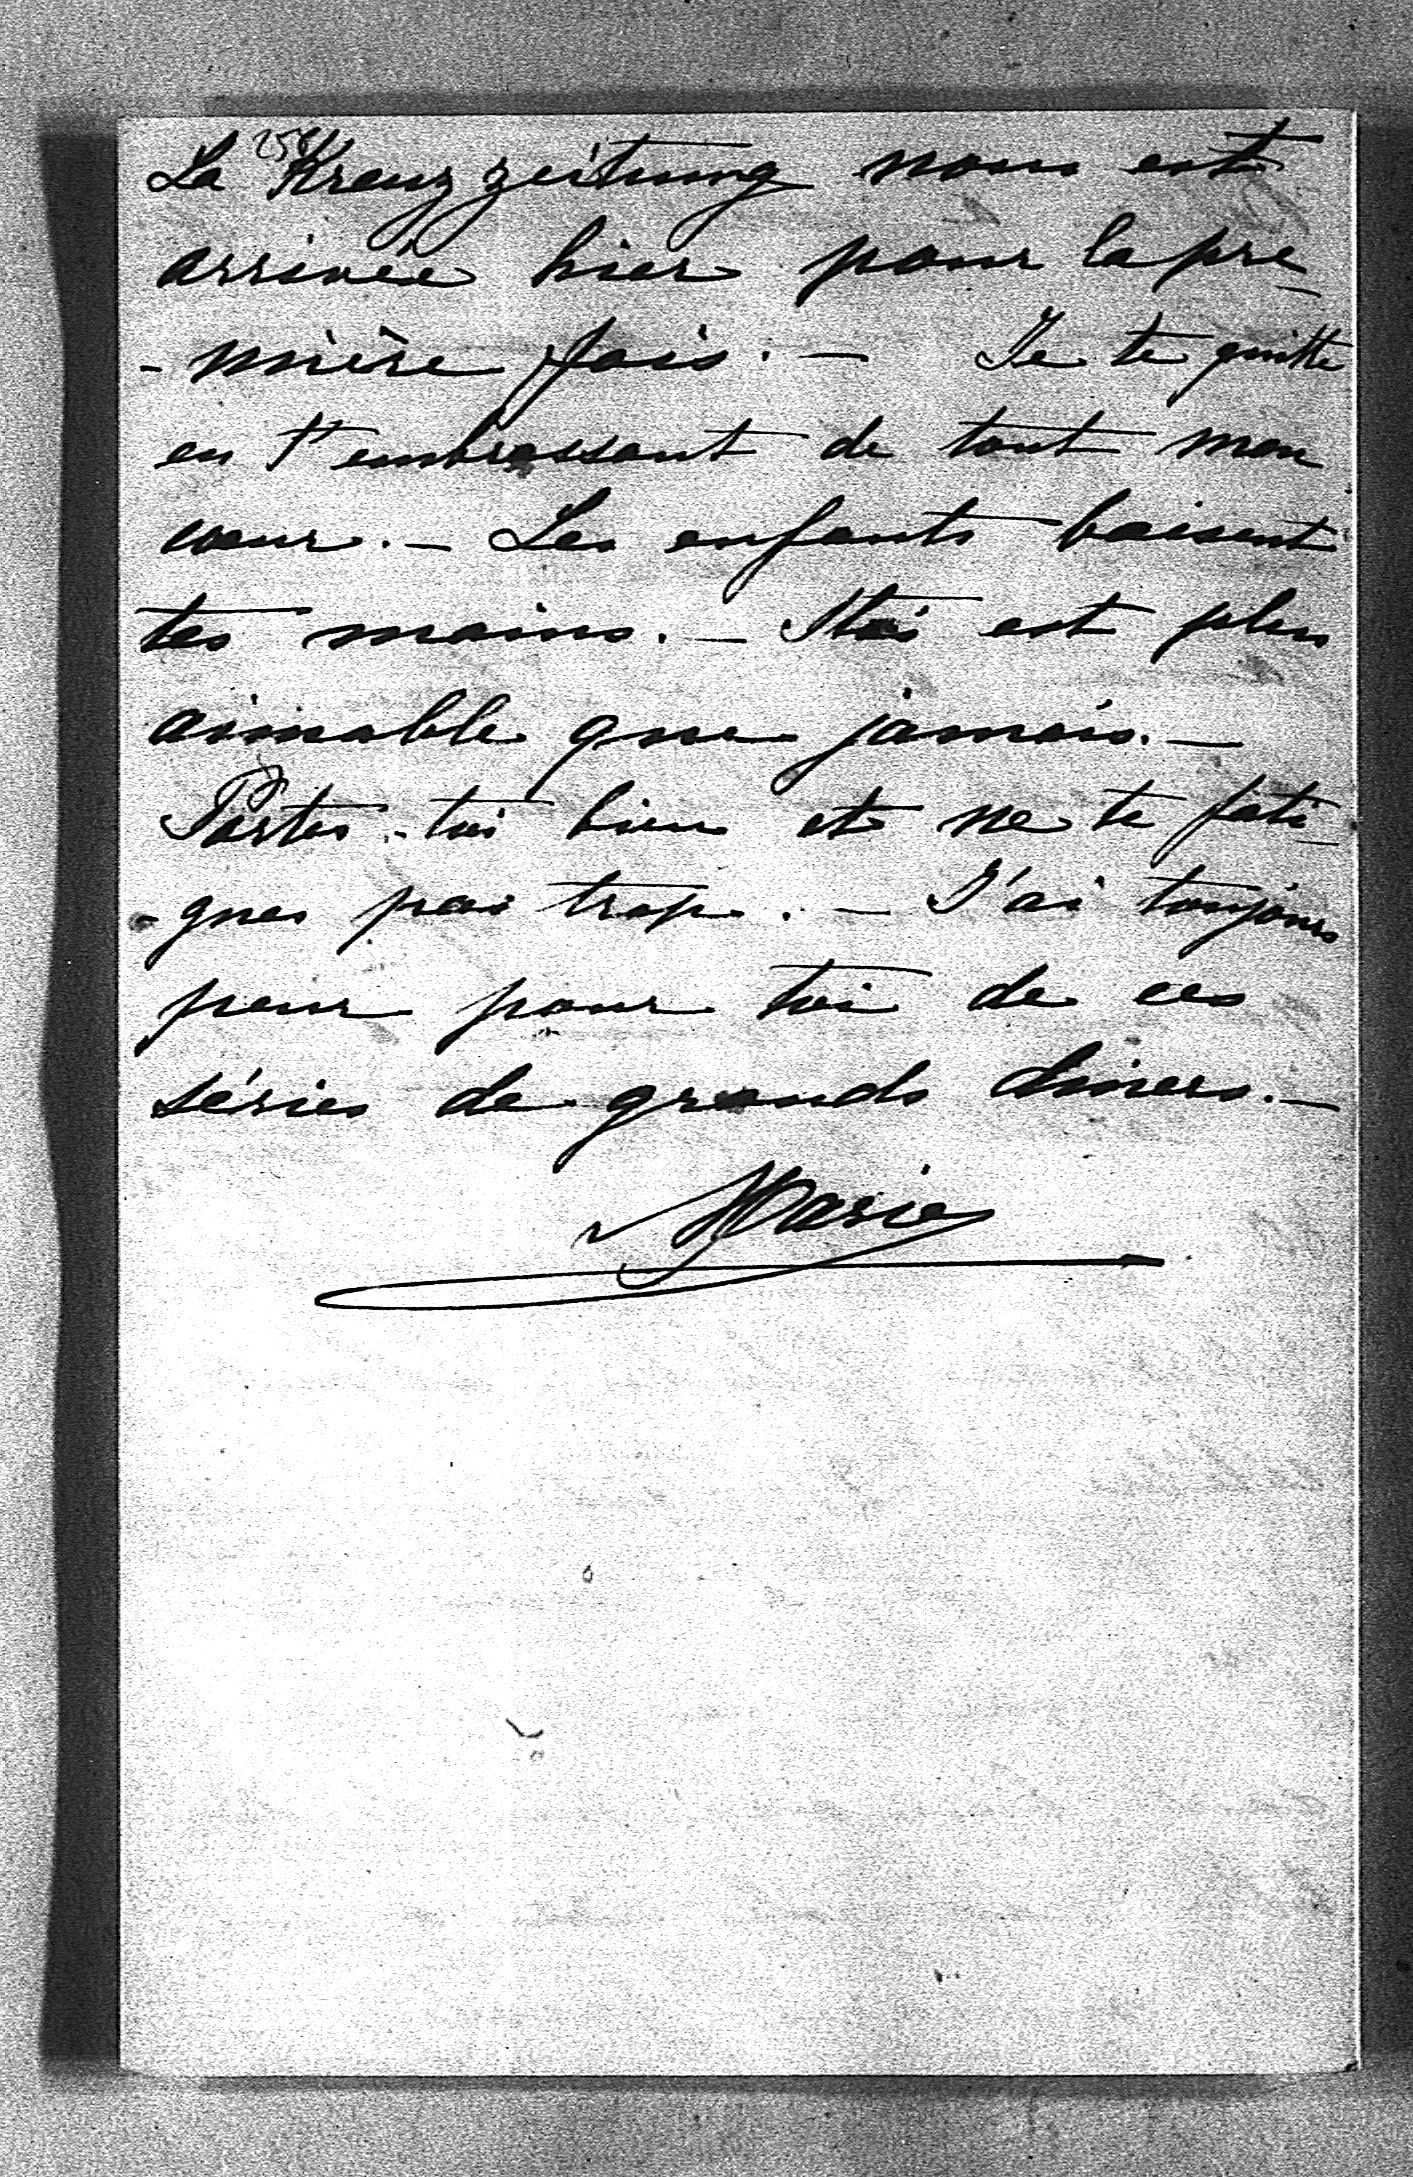 La Kreuzzeitung nous est
arrivée hier pour la pre
- mière fois. — Je te quitte
en t'embrassant de tout mon
coeur. — Les enfants baisent
tes mains. — est plus
aimable que jamais. —
Portes-toi bien et ne te fati
- gues pas trop. — J'ai toujours
peur pour toi de ces
séries de grands diners. —
Marie